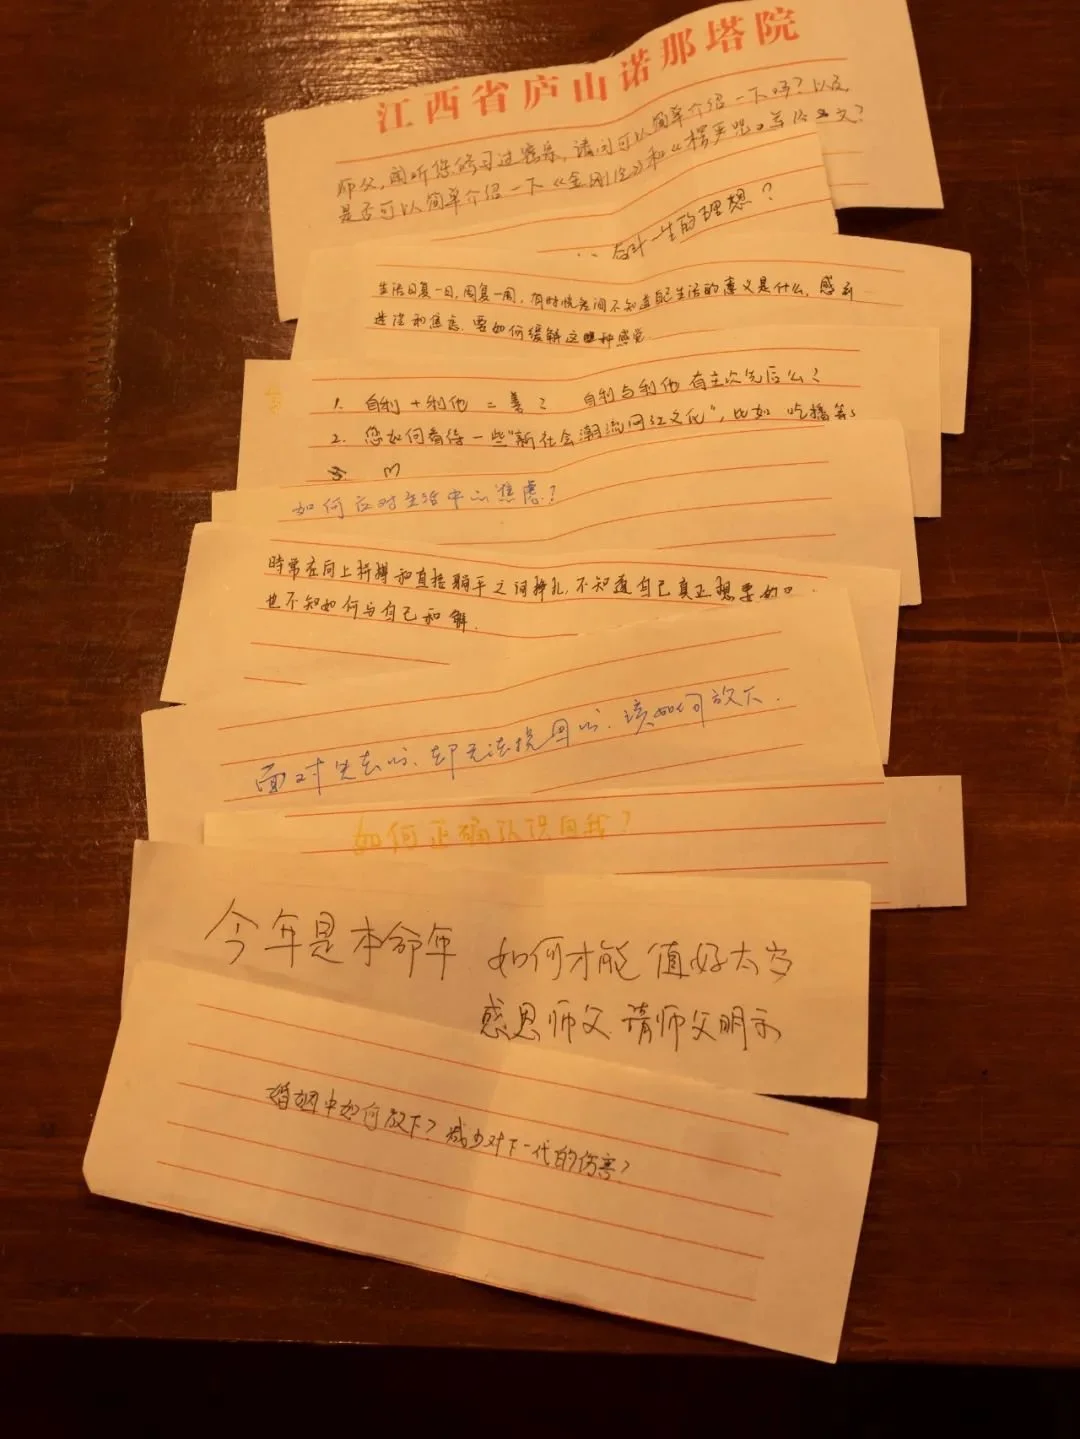 江西省庐山诺那塔院
师父,闻听您修习过密乘,请问可以简单介绍一下吗?以及
是否可以简单介绍一下《金刚经》和《楞严咒》等经文?
一生的理想?
生活日复一日,周复一周,有时恍若间不知道自己生活的意义是什么,感到
迷茫和焦虑.要如何缓解这种感觉
1. 自利+利他=善? 自利与利他有主次先后么?
2. 您如何看待一些"新社会潮流网红文化",比如吃播等
如何应对生活中的焦虑?
時常在向上拼搏和直接躺平之间挣扎,不知道自己真正想要的.
也不知如何与自己和解.
面对失去的.却无法挽回的.该如何放下.
如何正确认识自我?
今年是本命年 如何才能值好太岁
感恩师父 请师父明示
婚姻中如何放下?减少对下一代的伤害?